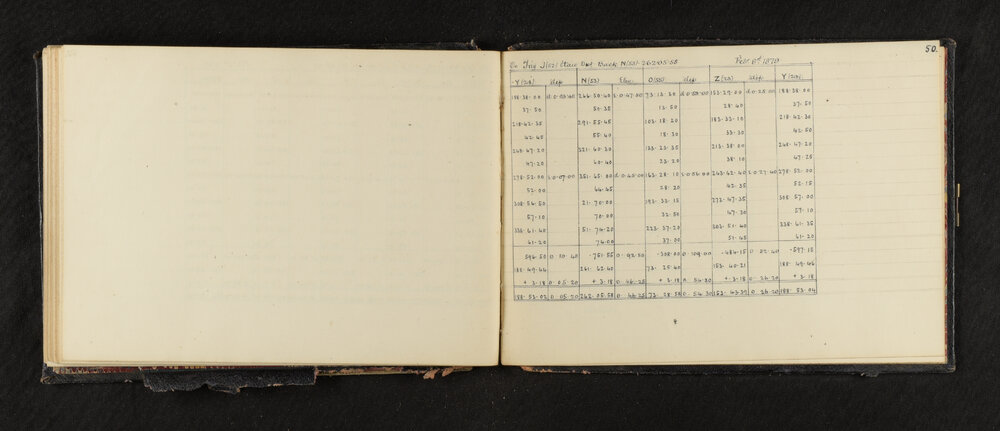 50.
On Trig J(52) Back N(53) 262·05·58 Feb 6th 1879
Y(28) Dep N(53) Elev O(55) dep Z(23) dep Y(28)
188·38·00 246·50·40 73·13·30 153·29·00 188·38·00
37·50 50·35 13·50 28·40 37·50
218·42·35 291·55·45 103·18·20 183·33·10 218·42·30
42·45 55·40 18·30 33·30 42·50
248·47·20 321·60·30 133·23·35 213·38·00 248·47·20
47·20 60·40 23·20 38·10 47·25
278·52·00 351·65·00 163·28·10 243·42·40 278·52·00
52·00 64·45 28·20 42·35 52·15
308·56·50 21·70·00 193·33·15 272·47·35 308·57·00
57·10 70·00 32·50 47·30 57·10
338·61·40 51·74·20 223·37·20 303·51·40 338·61·35
61·20 74·00 37·00 51·45 61·20
596·50 0·10·40 -751·55 0·92·50 -308·00 0·109·00 -484·15 0·52·40 -597·15
188·49·44 261·62·40 73·25·40 153·40·21 188·49·46
+3·18 0·05·20 +3·18 0·46·25 +3·18 0·54·30 +3·18 0·26·20 +3·18
188·53·02 0·05·20 262·05·58 0·46·25 73·28·58 0·54·30 153·43·39 0·26·20 188·53·04